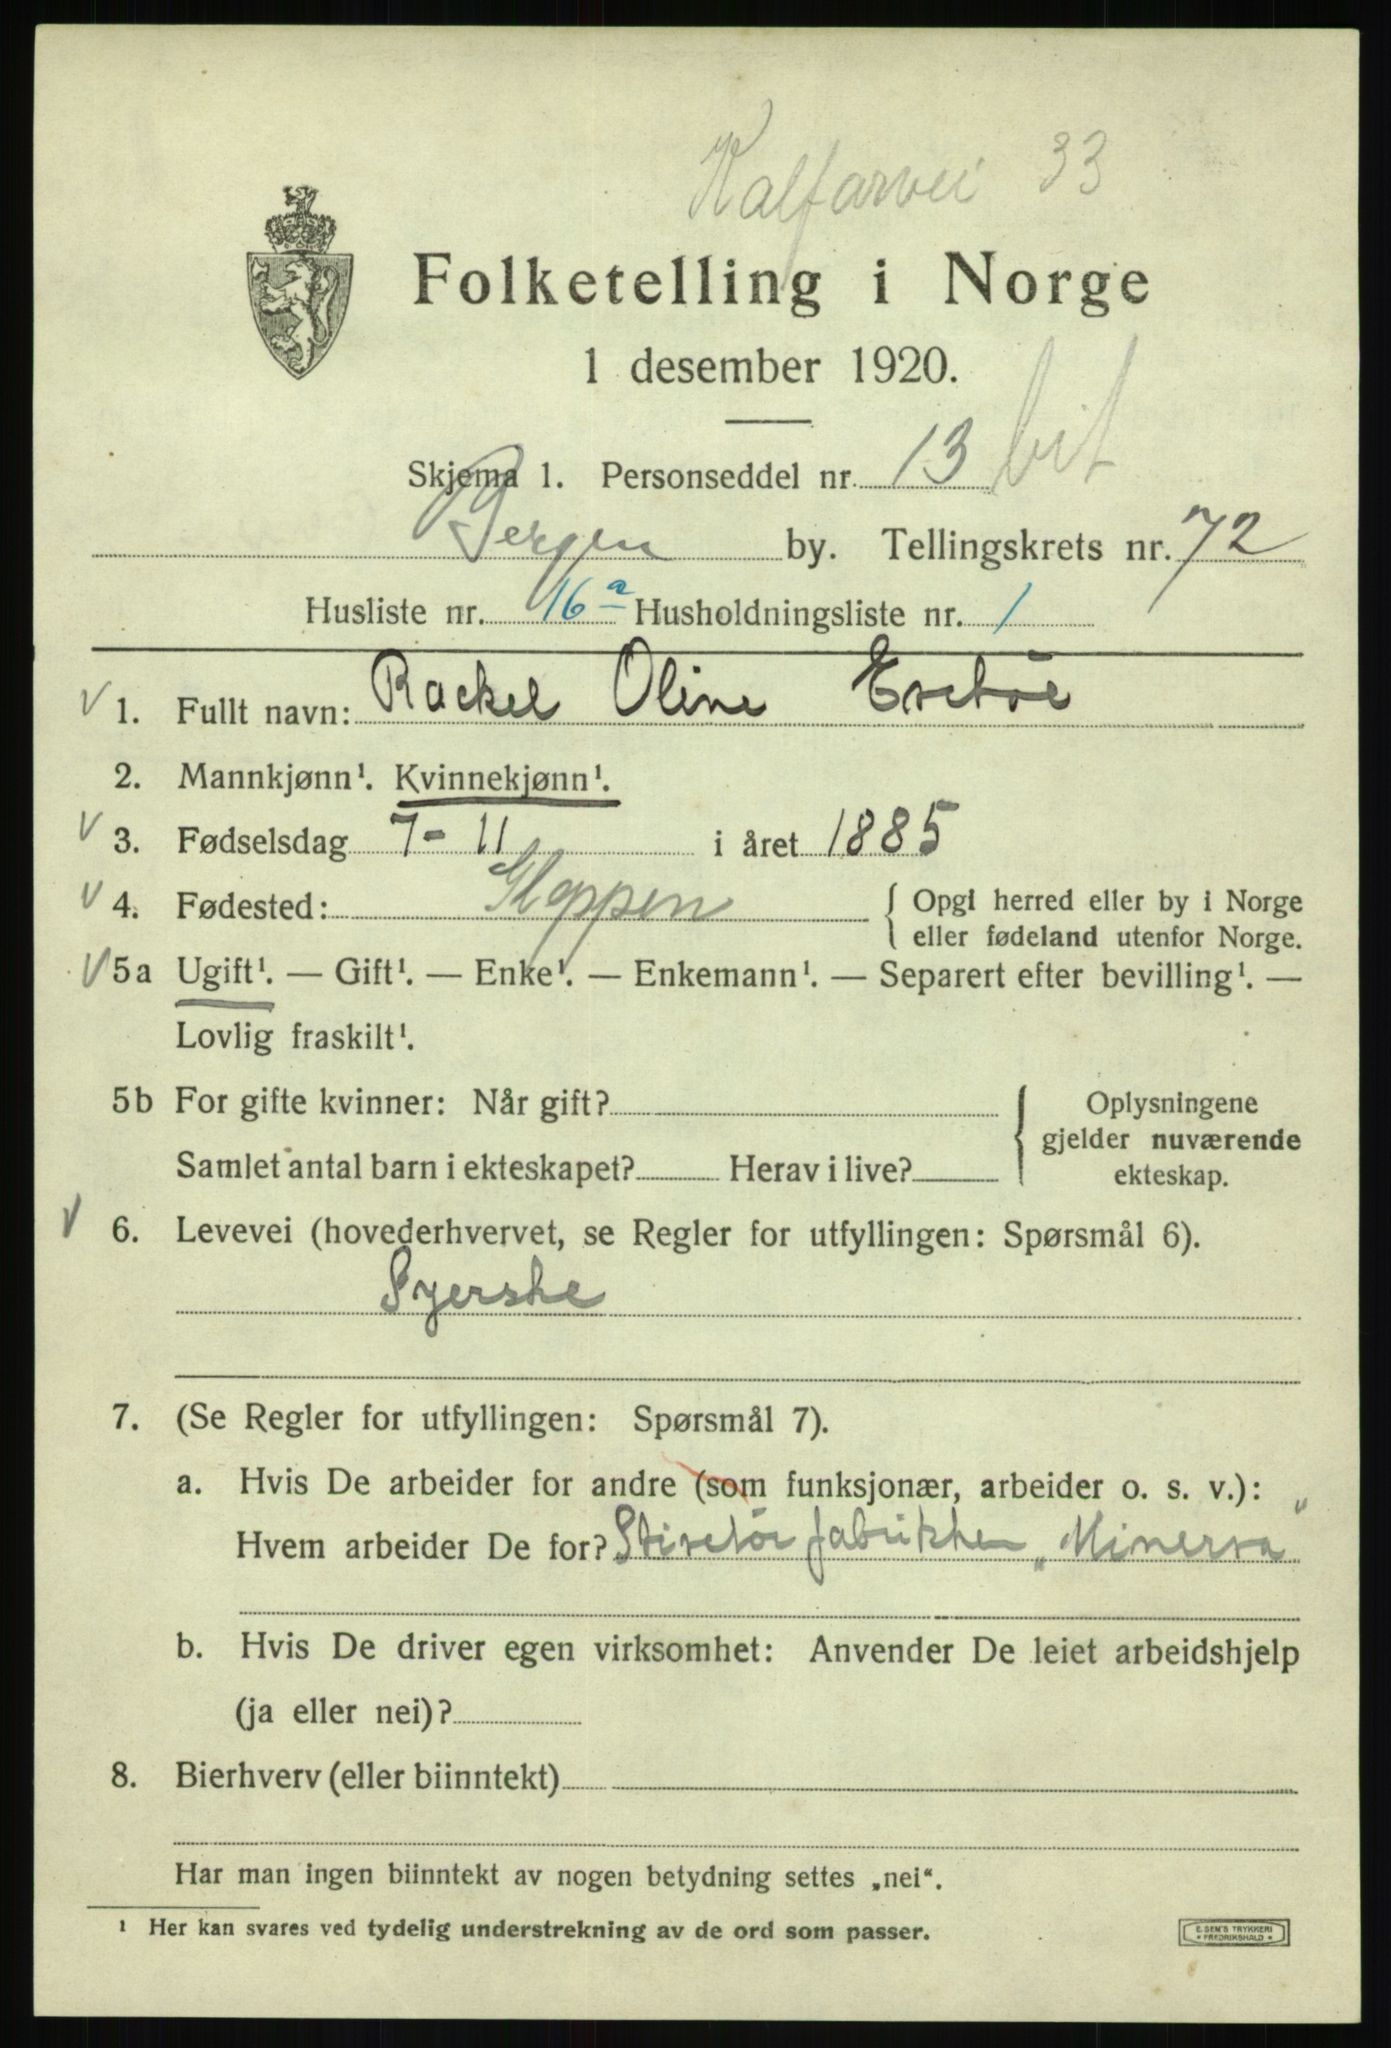 Kalfarvei 33
Folketelling i Norge
1 desember 1920.
Skjema 1. Personseddel nr. 13 bit
Bergen by. Tellingskrets nr. 72
Husliste nr. 16a Husholdningsliste nr. 1
1. Fullt navn: Rackel Oline
2. Mannkjønn¹. Kvinnekjønn¹.
3. Fødselsdag 7-11 i året 1885
4. Fødested: Gloppen { Opgi herred eller by i Norge
eller fødeland utenfor Norge.
5a Ugift¹. — Gift¹. — Enke¹. — Enkemann¹. — Separert efter bevilling¹. —
Lovlig fraskilt¹.
5b For gifte kvinner: Når gift? { Oplysningene
gjelder nuværende
Samlet antal barn i ekteskapet? Herav i live? ekteskap.
6. Levevei (hovederhvervet, se Regler for utfyllingen: Spørsmål 6).
Syerske
7. (Se Regler for utfyllingen: Spørsmål 7).
a. Hvis De arbeider for andre (som funksjonær, arbeider o. s. v.):
Hvem arbeider De for? fabrikken „Minerva"
b. Hvis De driver egen virksomhet: Anvender De leiet arbeidshjelp
(ja eller nei)?
8. Bierhverv (eller biinntekt)
Har man ingen biinntekt av nogen betydning settes „nei“.
¹ Her kan svares ved tydelig understrekning av de ord som passer.
E. SEM'S TRYKKERI
* FREDRIKSHALD *